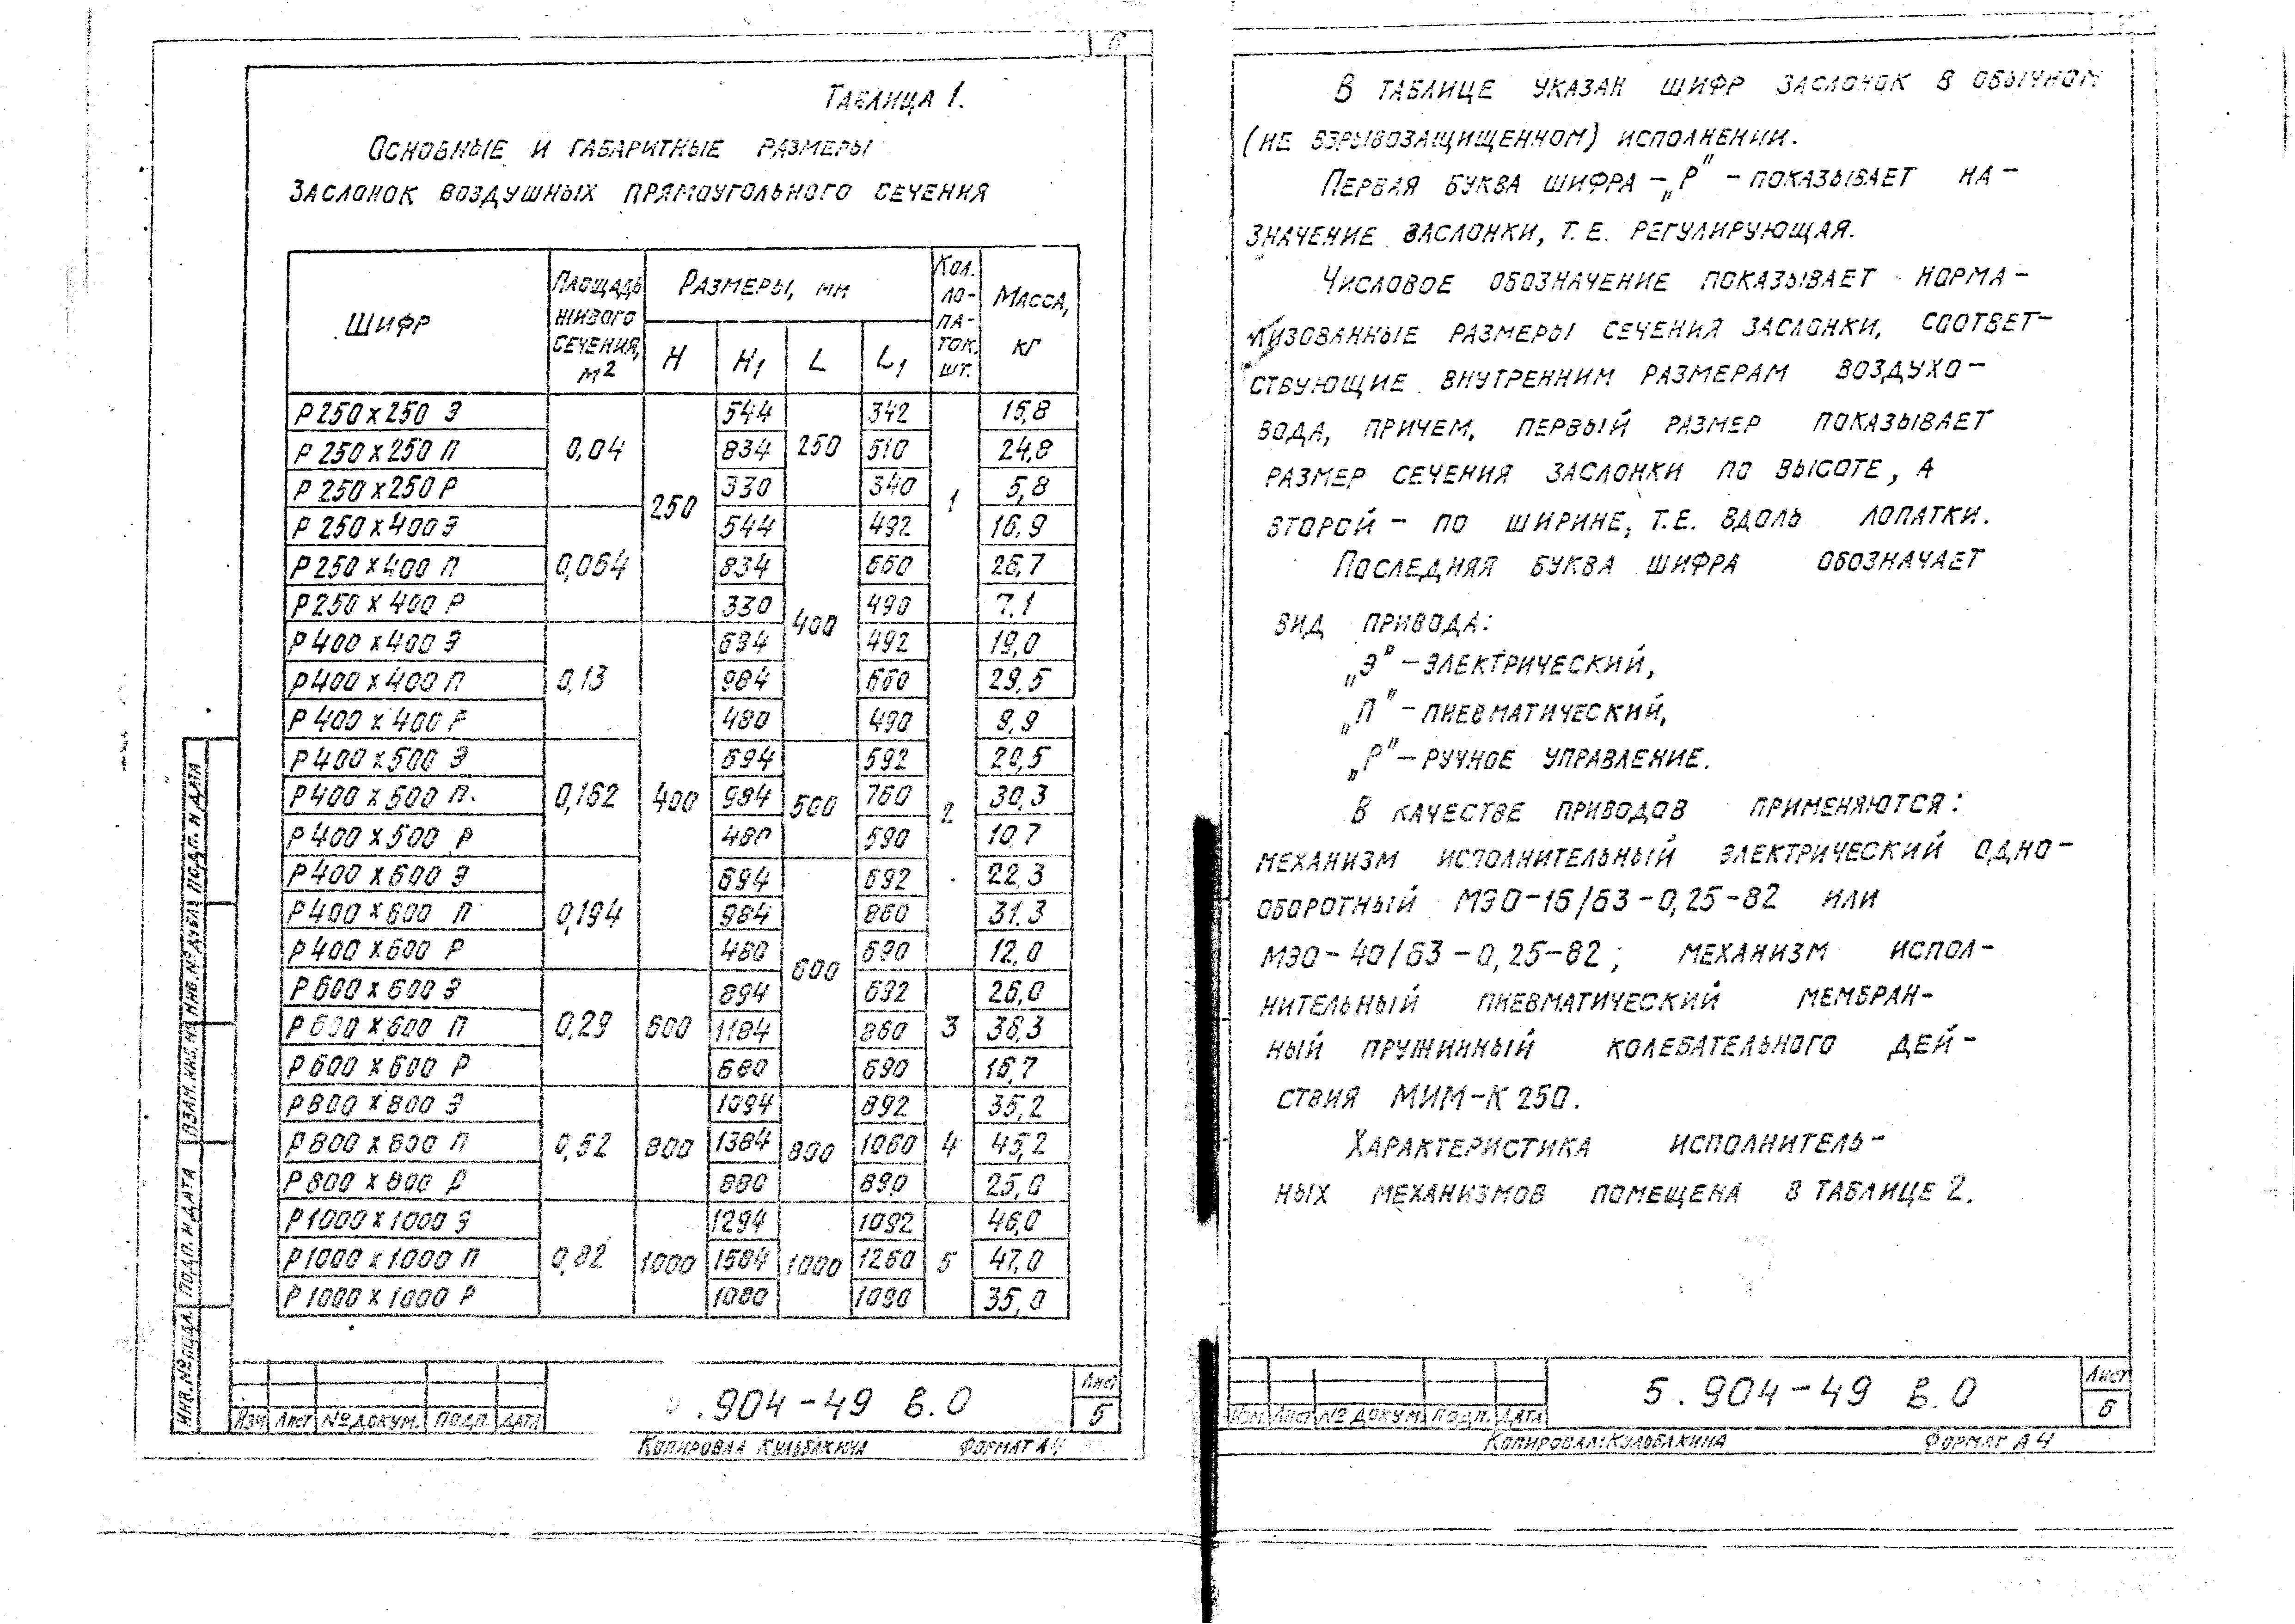 6
Таблица 1.
Основные и габаритные размеры
заслонок воздушных прямоугольного сечения
Шифр | Площадь живого сечения, м2 | Размеры, мм | Кол. ло-па-ток, шт. | Масса, кг
H | H1 | L | L1
Р 250 х 250 Э | 0,04 | 250 | 544 | 250 | 342 | 1 | 15,8
Р 250 х 250 П | 834 | 510 | 24,8
Р 250 х 250 Р | 330 | 340 | 5,8
Р 250 х 400 Э | 0,064 | 544 | 400 | 492 | 16,9
Р 250 х 400 П | 834 | 660 | 26,7
Р 250 х 400 Р | 330 | 490 | 7.1
Р 400 х 400 Э | 0,13 | 400 | 694 | 492 | 2 | 19,0
Р 400 х 400 П | 984 | 660 | 29,5
Р 400 х 400 Р | 480 | 490 | 9,9
Р 400 х 500 Э | 0,162 | 694 | 500 | 592 | 20,5
Р 400 х 500 П. | 984 | 760 | 30,3
Р 400 х 500 Р | 480 | 590 | 10,7
Р 400 х 600 Э | 0,194 | 694 | 600 | 692 | 22,3
Р 400 х 600 П | 984 | 860 | 31.3
Р 400 х 600 Р | 480 | 690 | 12,0
Р 600 х 600 Э | 0,29 | 600 | 894 | 692 | 3 | 26,0
Р 600 х 600 П | 1184 | 860 | 36,3
Р 600 х 600 Р | 680 | 690 | 16,7
Р 800 х 800 Э | 0,52 | 800 | 1094 | 800 | 892 | 4 | 35,2
Р 800 х 800 П | 1384 | 1060 | 45,2
Р 800 х 800 Р | 880 | 890 | 25,0
Р 1000 х 1000 Э | 0,82 | 1000 | 1294 | 1000 | 1092 | 5 | 46,0
Р 1000 х 1000 П | 1584 | 1260 | 47,0
Р 1000 х 1000 Р | 1080 | 1090 | 35,0
Инв. № подл. Подп. и дата Взам. инв. № Инв. № дубл. Подп. и дата
Изм Лист № докум. Подп. Дата
.904-49 в.0
Лист
5
Копировал Кульбакина Формат А4
В таблице указан шифр заслонок в обычном
(не взрывозащищенном) исполнении.
Первая буква шифра – „Р" – показывает на-
значение заслонки, т.е. регулирующая.
Числовое обозначение показывает норма-
лизованные размеры сечения заслонки, соответ-
ствующие внутренним размерам воздухо-
вода, причем, первый размер показывает
размер сечения заслонки по высоте, а
второй – по ширине, т.е. вдоль лопатки.
Последняя буква шифра обозначает
вид привода:
„Э" – электрический,
„П" – пневматический,
„Р" – ручное управление.
В качестве приводов применяются:
механизм исполнительный электрический одно-
оборотный МЭО-16/63-0,25-82 или
МЭО-40/63-0,25-82; механизм испол-
нительный пневматический мембран-
ный пружинный колебательного дей-
ствия МИМ-К 250.
Характеристика исполнитель-
ных механизмов помещена в таблице 2.
Изм. Лист № докум. Подп. Дата
5.904-49 в.0
Лист
6
Копировал: Кульбакина Формат А4